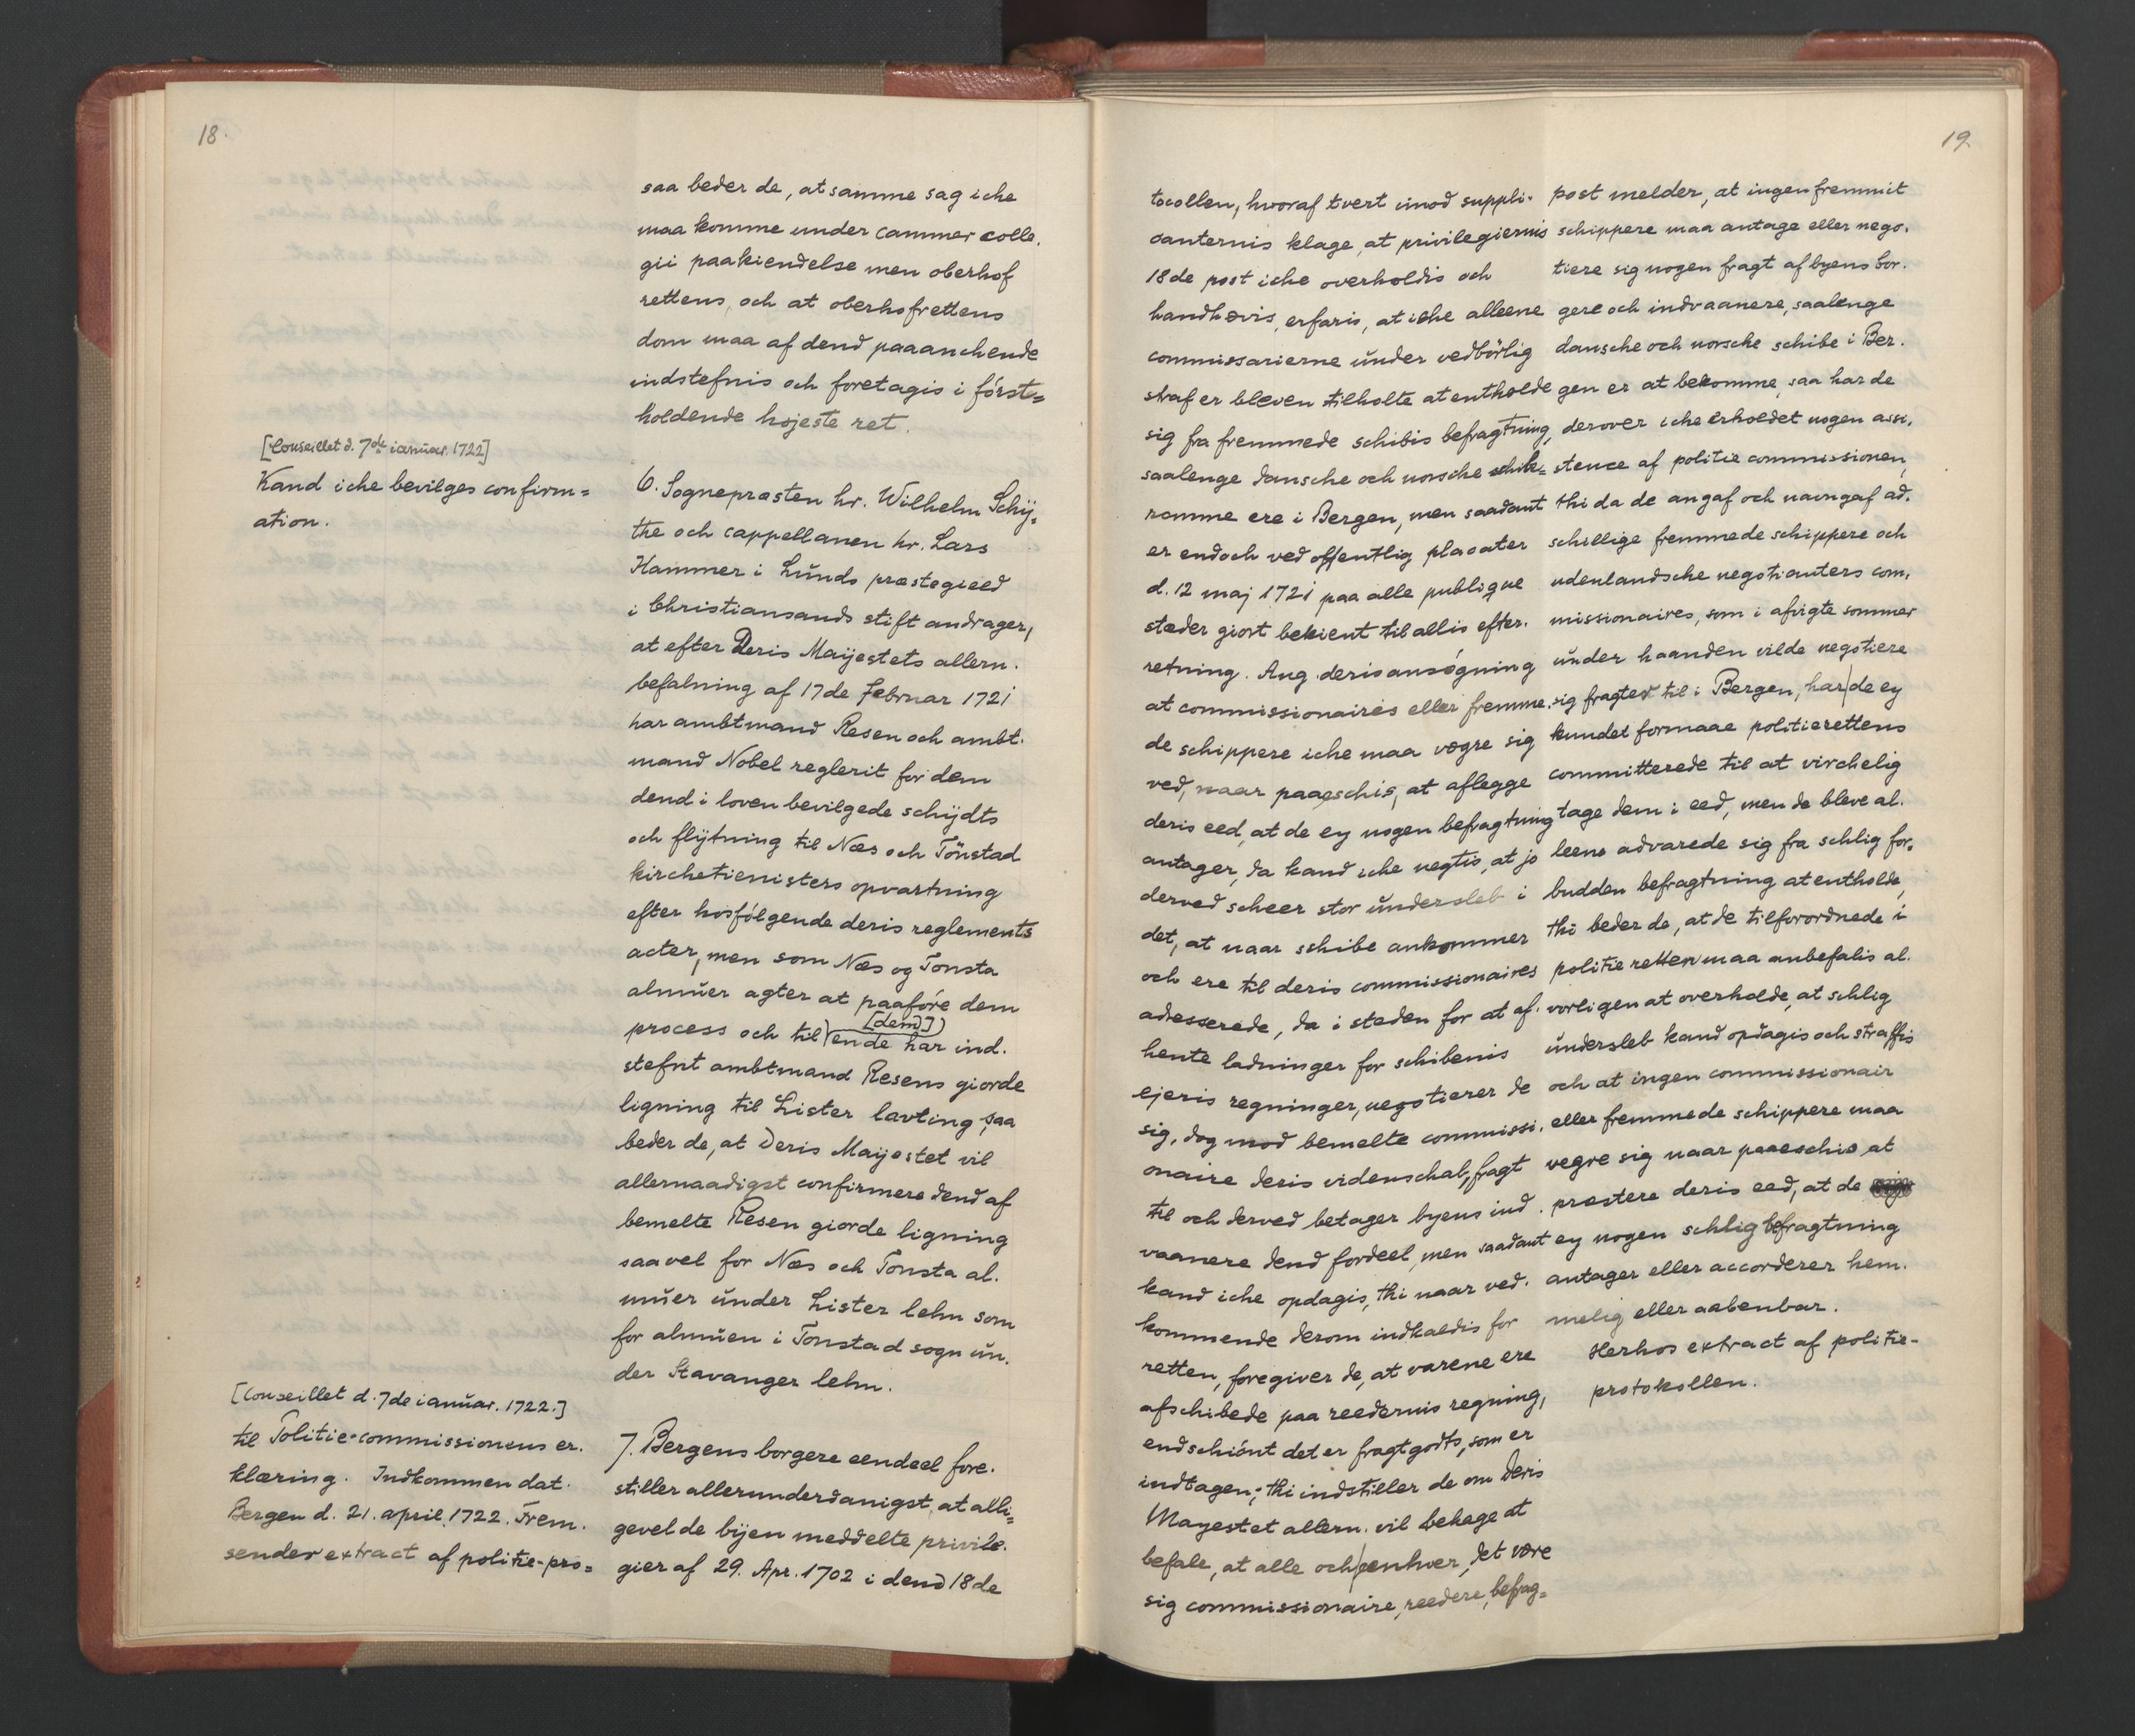 18.
saa beder de, at samme sag iche
maa komme under cammer colle.
gii paakiendelse men oberhof
rettens, och at oberhofrettens
dom maa af dend paaanchende
indstefnis och foretagis i först=
holdende højeste ret.
[Conseillet d. 7de ianuar. 1722]
Kand iche bevilges confirm=
ation.
6. Sognepræsten hr. Wilhelm Schÿ=
the och cappellanen hr. Lars
Hammer i Lunds præstegield
i Christiansands stift andrager,
at efter Deris Maijestets allern.
befalning af 17de Februar 1721
har ambtmand Resen och ambt.
mand Nobel reglerit for dem
dend i loven bevilgede schijdts
och flijtning til Næs och Tönstad
kirchetienisters opvartning
efter hosfölgende deris reglements
acter, men som Næs og Tonsta
almuer agter at paaföre dem
process och til ende har ind.
[dem]
stefnt ambtmand Resens giorde
ligning til Lister lavting, saa
beder de, at Deris Maijestet vil
allernaadigst confirmere dend af
bemelte Resen giorde ligning
saavel for Næs och Tonsta al.
muer under Lister lehn som
for almuen i Tonstad sogn un.
der Stavanger lehn.
[Conseillet d. 7de ianuar. 1722.]
til Politie-commissionens er.
klæring. Indkommen dat.
Bergen d. 21. april 1722. Frem.
sender extract af politie-pro=
7. Bergens borgere eendeel fore.
stiller allerunderdanigst, at alli=
gevel de bijen meddelte privile.
gier af 29. Apr. 1702 i dend 18de
19.
tocollen, hvoraf tvert imod suppli-
canternis klage, at privilegiernis
18de post iche overholdis och
handhævis, erfaris, at iche alleene
commissarierne under vedbörlig
straf er bleven tilholte at entholde
sig fra fremmede schibis befragtning,
saalenge dansche och norsche schib=
romme ere i Bergen, men saadant
er endoch ved offentlig placater
d. 12 maj 1721 paa alle publique
stæder giort bekient til allis efter.
retning. Ang. deris ansøgning
at commissionaires eller fremme.
de schippere iche maa vægre sig
ved, naar paaeschis, at aflegge
deris eed, at de ey nogen befragtning
antager, da kand iche negtis, at jo
derved scheer stor undersleb i
det, at naar schibe ankommer
och ere til deris commissionaires
adesserede, da i steden for at af.
hente ladninger for schibenis
ejeris regninger, negotierer de
sig, dog mod bemelte commissi.
onaire deris videnschab, fragt
til och derved betager byens ind.
vaanere dend fordeel, men saadant
kand iche opdagis, thi naar ved.
kommende derom indkaldis for
retten, foregiver de, at varene ere
afschibede paa reedernis regning,
endschiönt det er fragtgodts, som er
indtagen; thi indstiller de om Deris
Mayestet allern. vil behage at
befale, at alle och eenhver, det være
sig commissionaire, reedere, befrag=
post melder, at ingen fremmit
schippere maa antage eller nego.
tiere sig nogen fragt af byens bor.
gere och indvaanere, saalenge
dansche och norsche schibe i Ber.
gen er at bekomme, saa har de
derover iche erholdet nogen assi.
stence af politie commissionen,
thi da de angaf och navngaf ad.
schellige fremmede schippere och
udenlandsche negotianters com.
missionaires, som i afvigte sommer
under haanden vilde negotiere
sig fragter til i Bergen, har de ey
kundet formaae politierettens
committerede til at virchelig
tage dem i eed, men de bleve al.
leene advarede sig fra schlig for.
budden befragtning at entholde,
thi beder de, at de tilforordnede i
politie retten maa anbefalis al.
vorligen at overholde, at schlig
undersleb kand opdagis och straffis
och at ingen commissionair
eller fremmede schippere maa
vegre sig naar paaeschis at
præstere deris eed, at de
ey nogen schlig befragtning
antager eller accorderer hem.
melig eller aabenbar.
Herhos extract af politie-
protokollen.